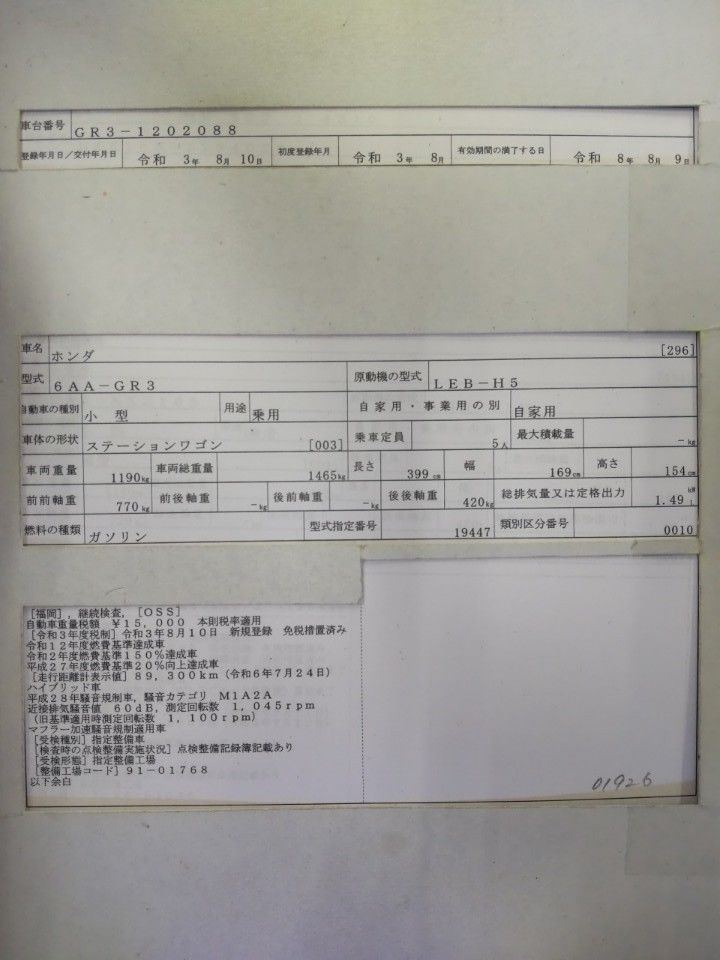 車台番号 GR3-1202088
登録年月日/交付年月日 令和 3年 8月 10日 初度登録年月 令和 3年 8月 有効期間の満了する日 令和 8年 8月 9日
車名 ホンダ [296]
型式 6AA-GR3 原動機の型式 LEB-H5
自動車の種別 小型 用途 乗用 自家用・事業用の別 自家用
車体の形状 ステーションワゴン [003] 乗車定員 5人 最大積載量 -kg
車両重量 1190kg 車両総重量 1465kg 長さ 399cm 幅 169cm 高さ 154cm
前前軸重 770kg 前後軸重 -kg 後前軸重 -kg 後後軸重 420kg 総排気量又は定格出力 1.49 kW L
燃料の種類 ガソリン 型式指定番号 19447 類別区分番号 0010
[福岡],継続検査,[OSS]
自動車重量税額 ¥15,000 本則税率適用
[令和3年度税制]令和3年8月10日 新規登録 免税措置済み
令和12年度燃費基準達成車
令和2年度燃費基準150%達成車
平成27年度燃費基準20%向上達成車
[走行距離計表示値]89,300km(令和6年7月24日)
ハイブリッド車
平成28年騒音規制車,騒音カテゴリ M1A2A
近接排気騒音値 60dB,測定回転数 1,045rpm
(旧基準適用時測定回転数 1,100rpm)
マフラー加速騒音規制適用車
[受検種別]指定整備車
[検査時の点検整備実施状況]点検整備記録簿記載あり
[受検形態]指定整備工場
[整備工場コード]91-01768
以下余白
01926